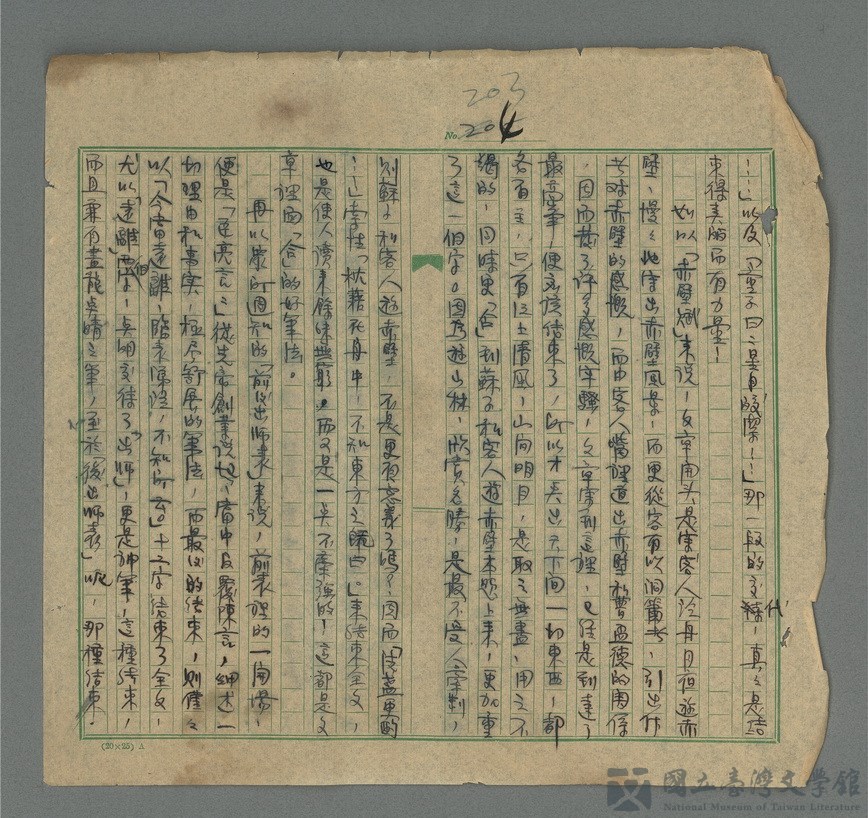 203
No. 204
……」以及「童子曰：『是自  ！』」那一段的交代，真々是結
束得美的而有力量！
如以「赤壁賦」來說，文章開头，是  客人  舟月夜遊赤
壁，慢々地寫出赤壁風景，而更從客有吹洞簫者，引出作
者对赤壁的感慨，而由客人嘴裡道出赤壁和曹孟德的関係
，因而發了許多感慨牢騷，文章寫到這裡，已經是到達了
最高峯，便   結束了，所以才  出天下間一切東西，都
各有主，只有江上清風，山间明月，是取之無盡，用之不
竭的，同時更「合」到蘇子和客人遊赤壁本題上來，更加重
了這一個字。因為遊山林，欣賞名勝，是最不受人 制，
則蘇子和客人遊赤壁，不是更有意義了嗎？因而「洗盞更酌
……」索性「枕藉於舟中，不知東方之既白。」來結束全文，
也是使人讀來餘味無窮。而又是一点不牽強的，這都是文
章裡面「合」的好筆法。
再以 所週知的「前後出師表」來說，前表裡的一開場，
便是「臣亮言：」從先帝創業說起，當中反覆陳言，細述一
切理由和事实，極尽舒展的筆法，而最後的結束，則僅々
以「今當遠離，臨表陳 ，不知所言」十二字結束了全文，
尤以「遠離」兩個字，点明交待了"出師"，更是神筆，這種結束，
而且兼有畫龍点睛之筆，至於「後出師表」呢，那種結束，
(20×25) A
國立臺灣文學館
National Museum of Taiwan Literature